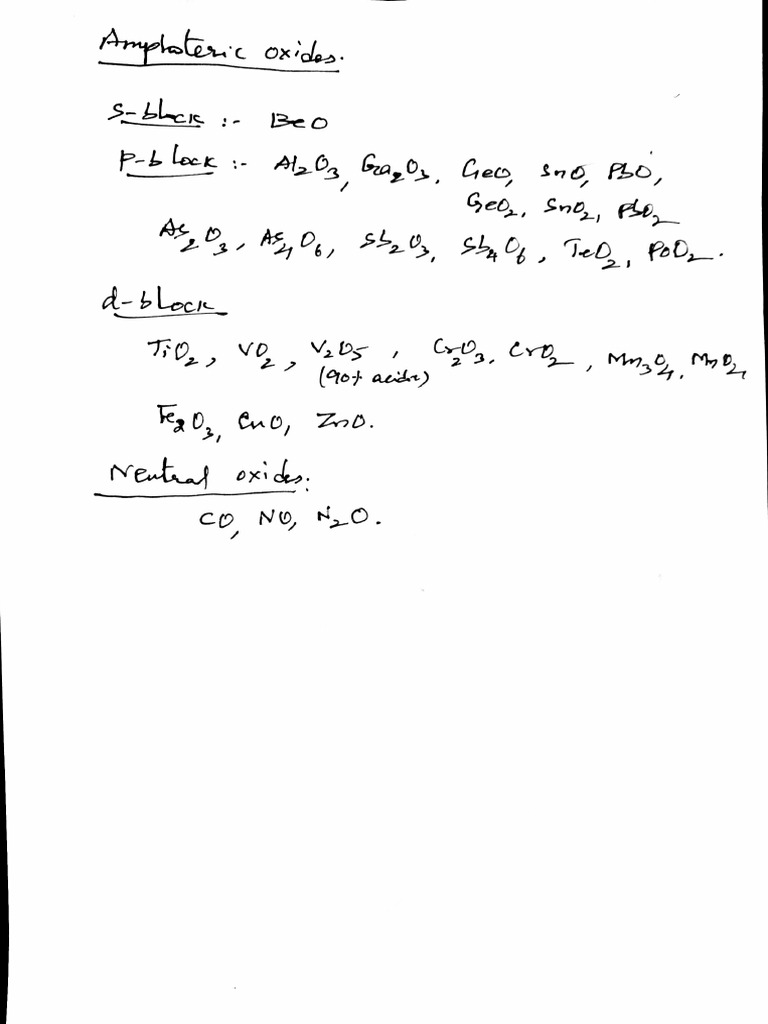 Amphoteric oxides.
s-block :- BeO
p-block :- Al2O3, Ga2O3, GeO, SnO, PbO,
GeO2, SnO2, PbO2
As2O3, As4O6, Sb2O3, Sb4O6, TeO2, PoO2.
d-block
TiO2, VO2, V2O5, Cr2O3, CrO2, Mn3O4, MnO2,
(got acidic)
Fe2O3, CuO, ZnO.
Neutral oxides:
CO, NO, N2O.